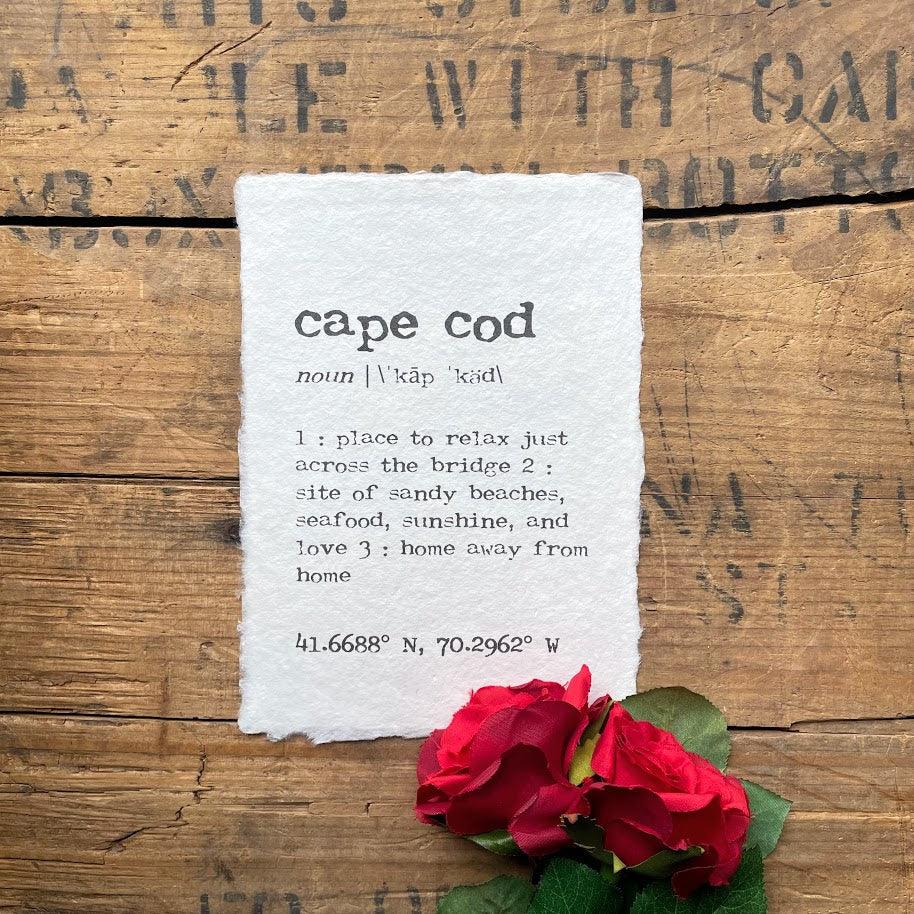 WITH
cape cod
noun | \ˈkāp ˈkäd\
1 : place to relax just
across the bridge 2 :
site of sandy beaches,
seafood, sunshine, and
love 3 : home away from
home
41.6688° N, 70.2962° W